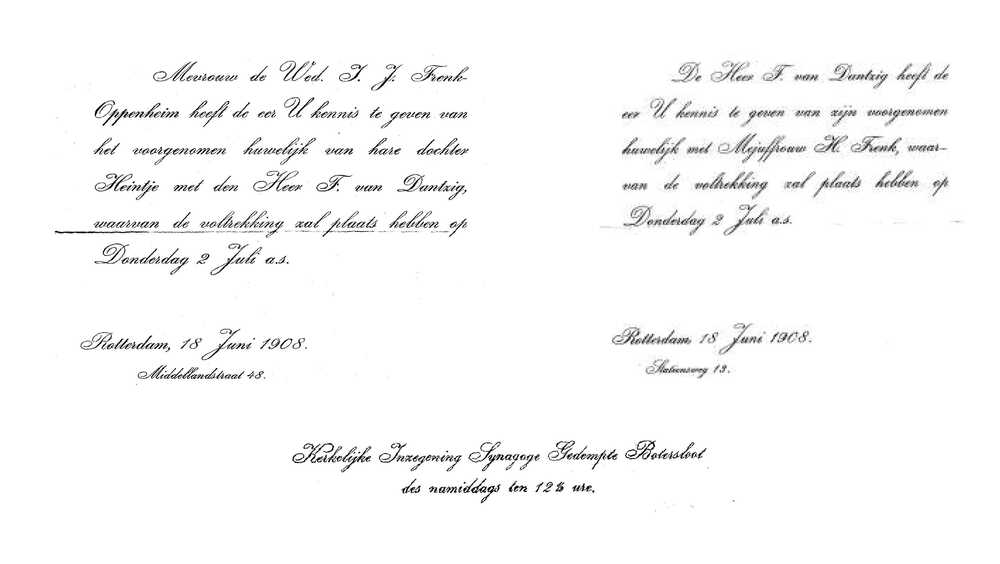 Mevrouw de Wed. I. J. Frenk-
Oppenheim heeft de eer U kennis te geven van
het voorgenomen huwelijk van hare dochter
Heintje met den Heer F. van Dantzig,
waarvan de voltrekking zal plaats hebben op
Donderdag 2 Juli a.s.
Rotterdam, 18 Juni 1908.
Middellandstraat 48.
De Heer F. van Dantzig heeft de
eer U kennis te geven van zijn voorgenomen
huwelijk met Mejuffrouw H. Frenk, waar-
van de voltrekking zal plaats hebben op
Donderdag 2 Juli a.s.
Rotterdam, 18 Juni 1908.
Statensweg 13.
Kerkelijke Inzegening Synagoge Gedempte Botersloot
des namiddags ten 12½ ure.